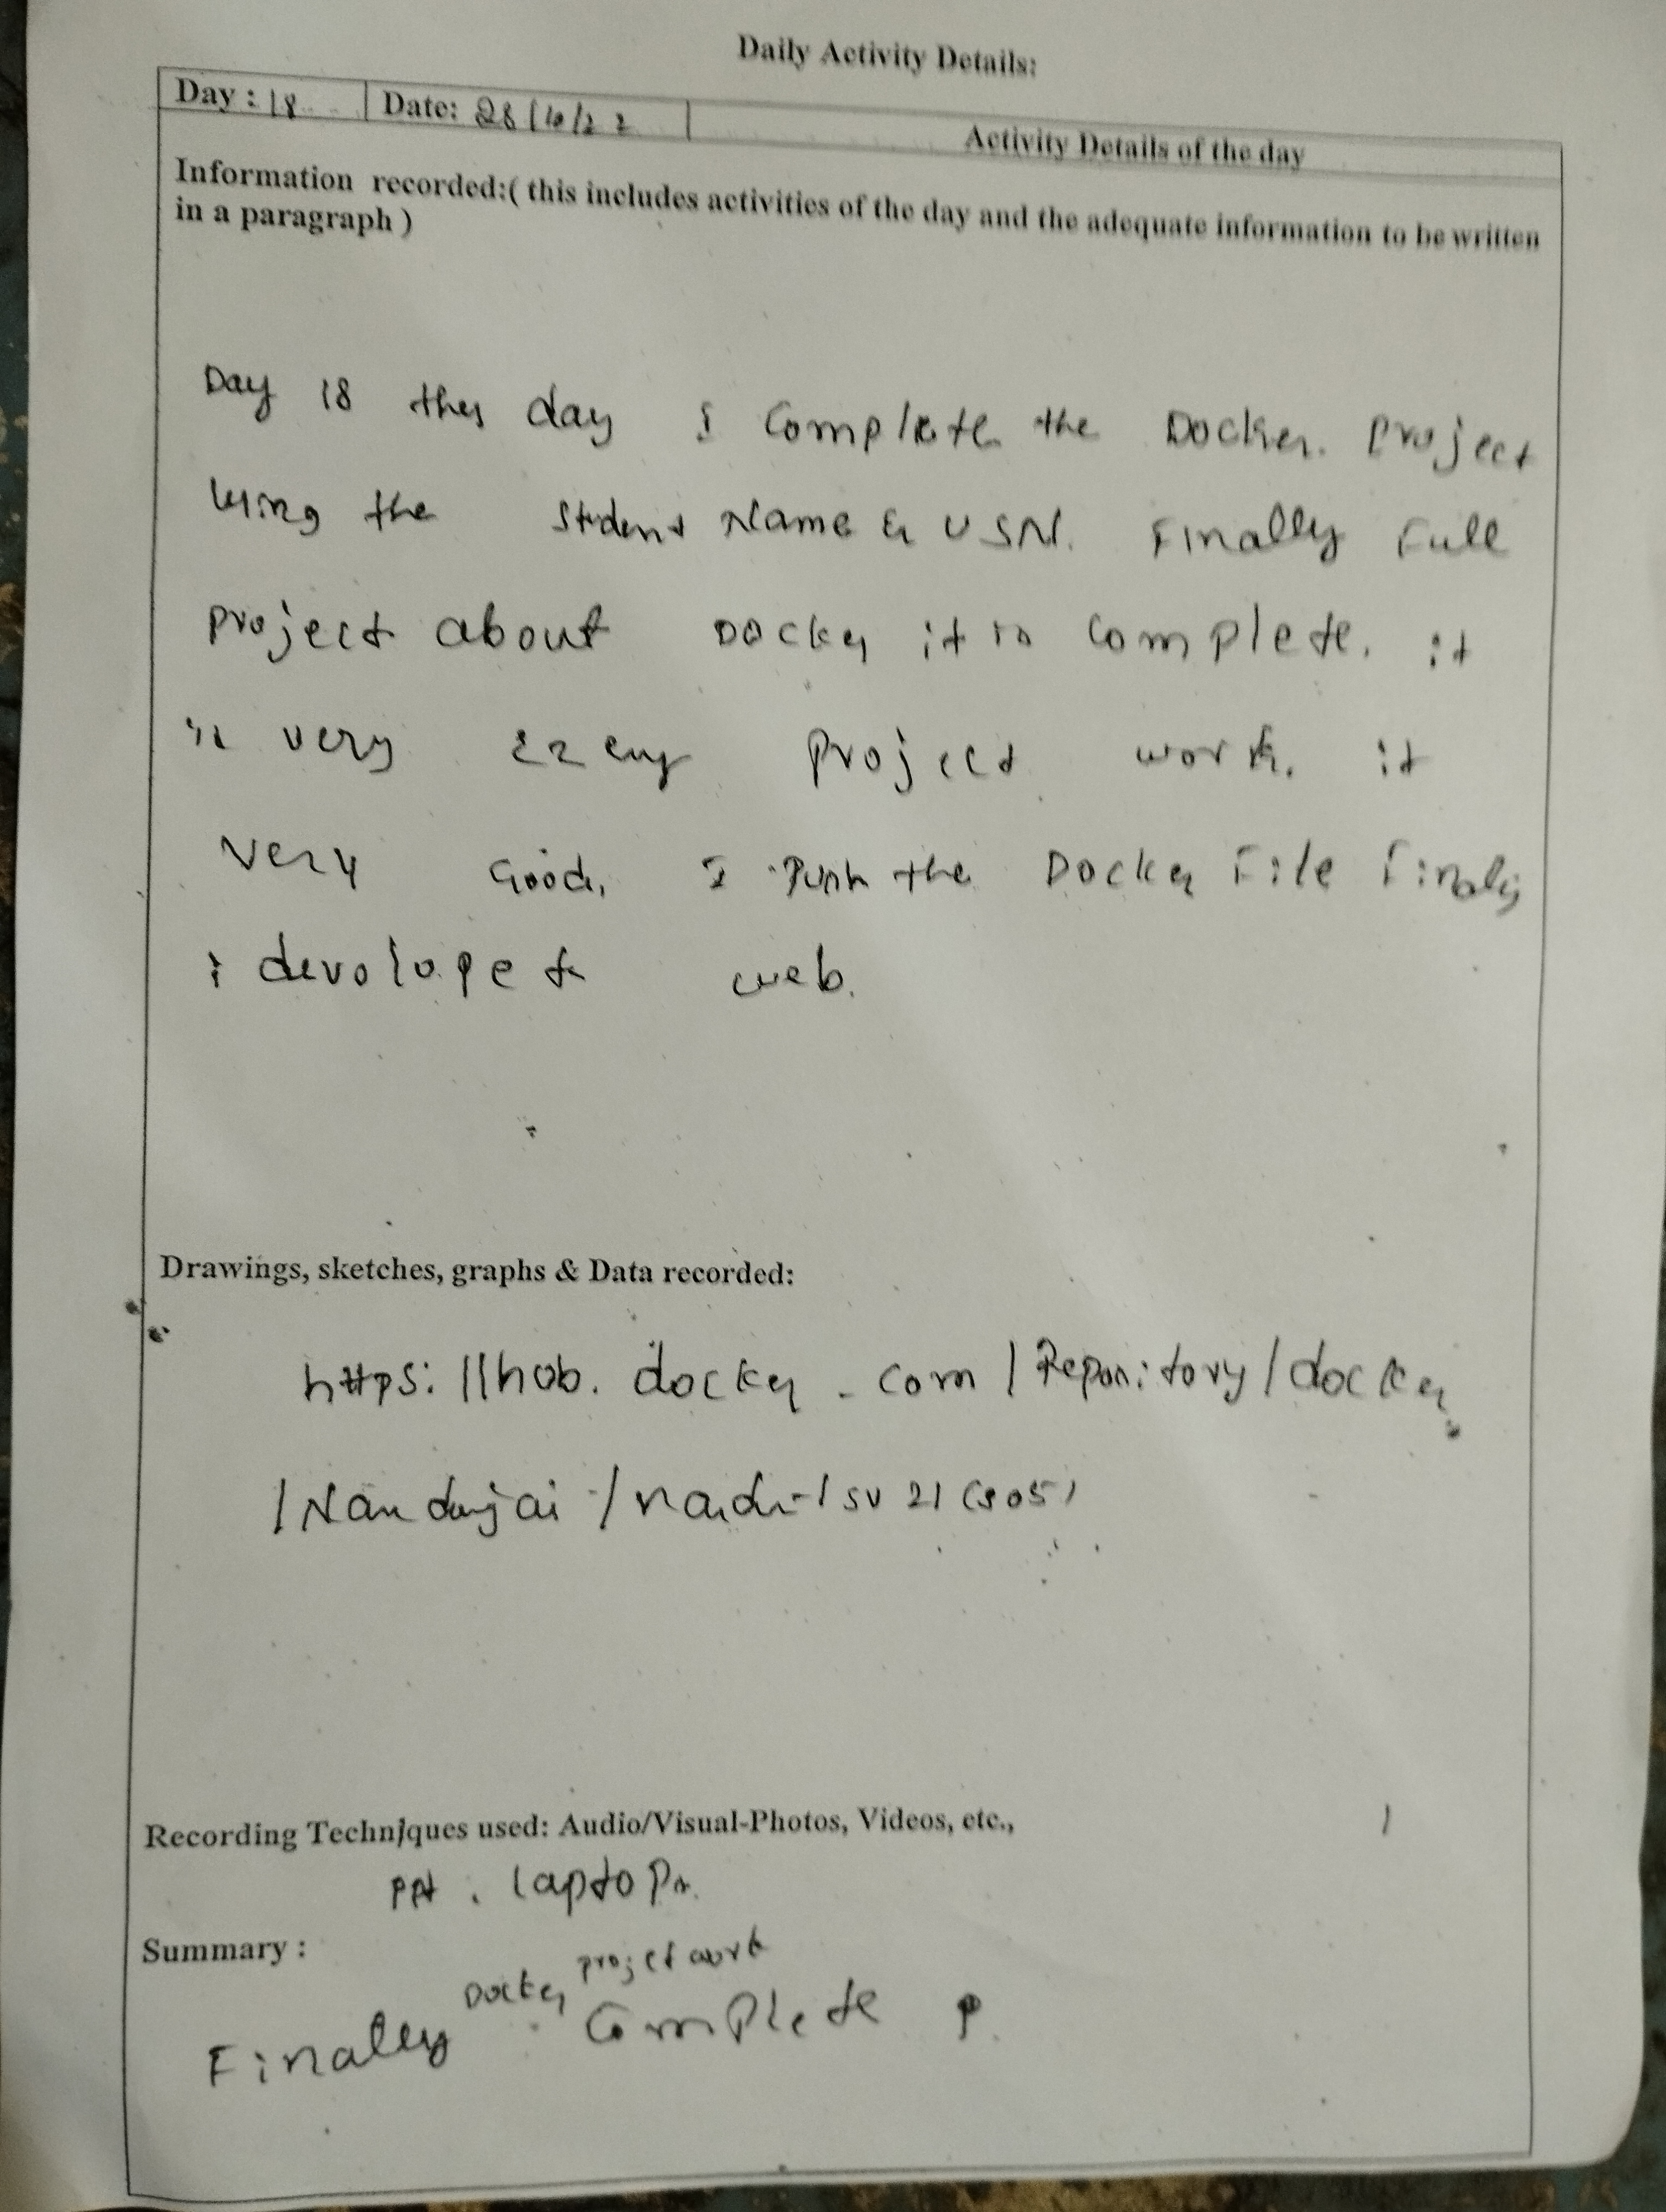 Daily Activity Details:
Day : 18 Date: 28/10/22 Activity Details of the day
Information recorded:( this includes activities of the day and the adequate information to be written
in a paragraph )
Day 18 this day I Complete the Docker. Project
using the Student Name & USN. Finally Full
project about Docker it is complete. it
is very ezey project work. it
very Good, I Push the Docker File Finaly
i devolope web.
Drawings, sketches, graphs & Data recorded:
https://hob.docker.com/Repository/docker
/Nandujai/
Recording Techniques used: Audio/Visual-Photos, Videos, etc.,
PPt. laptop
Summary :
Finally Docker projet work Complete